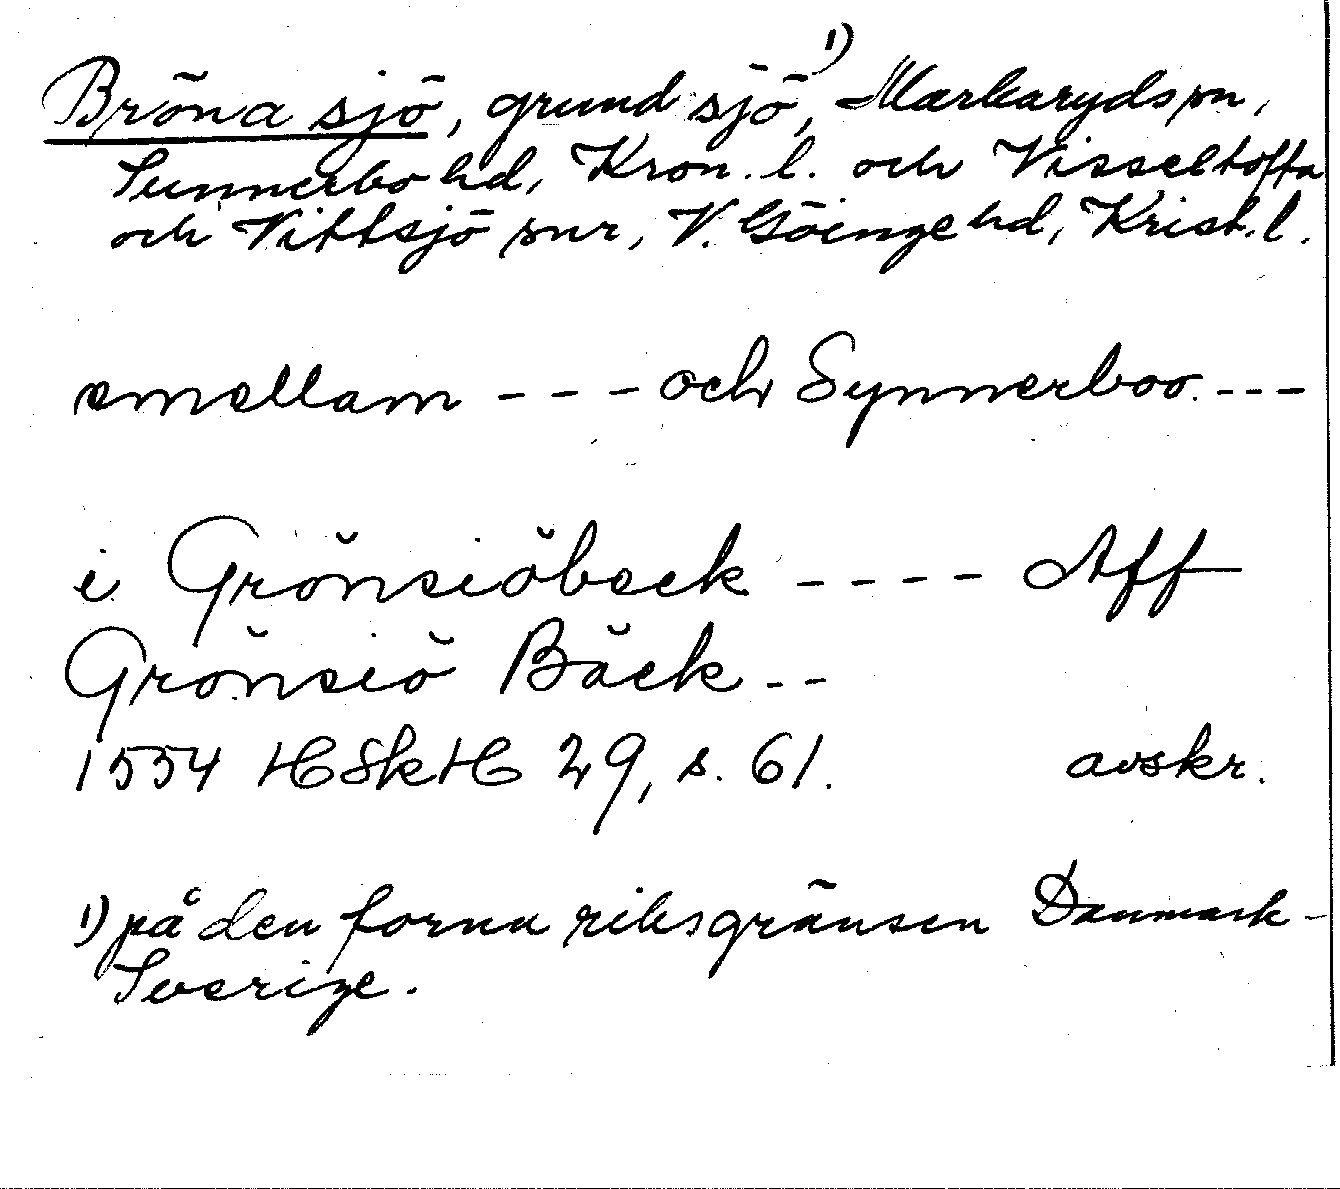 Bröna sjö, grund sjö,¹⁾ Markaryds sn,
Sunnerbo hd, Kron. l. och Visseltofta
och Vittsjö snr, V. Göinge hd, Krist. l.
emellam - - - och Synnerboo - - -
i Grönsiöbeck - - - - Aff
Grönsiö Bäck - -
1554 HSkH 29, s. 61. avskr.
1) på den forna riksgränsen Danmark-
Sverige.